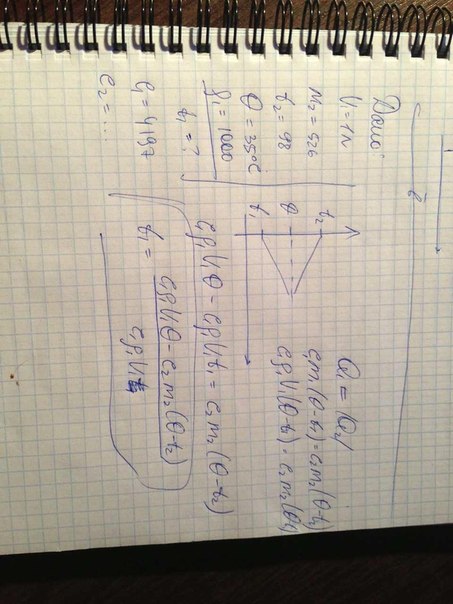 Дано:
V₁ = 1л
m₂ = 526
t₂ = 98
Θ = 35°C
ρ₁ = 1000
t₁ = ?
c₁ = 4187
c₂ = ...
t₂
Θ
t₁
Q₁ = |Q₂|
c₁m₁(Θ-t₁) = c₂m₂(Θ-t₂)
c₁ρ₁V₁(Θ-t₁) = c₂m₂(Θ
c₁ρ₁V₁Θ - c₁ρ₁V₁t₁ = c₂m₂(Θ-t₂)
t₁ = c₁ρ₁V₁Θ - c₂m₂(Θ-t₂)
c₁ρ₁V₁